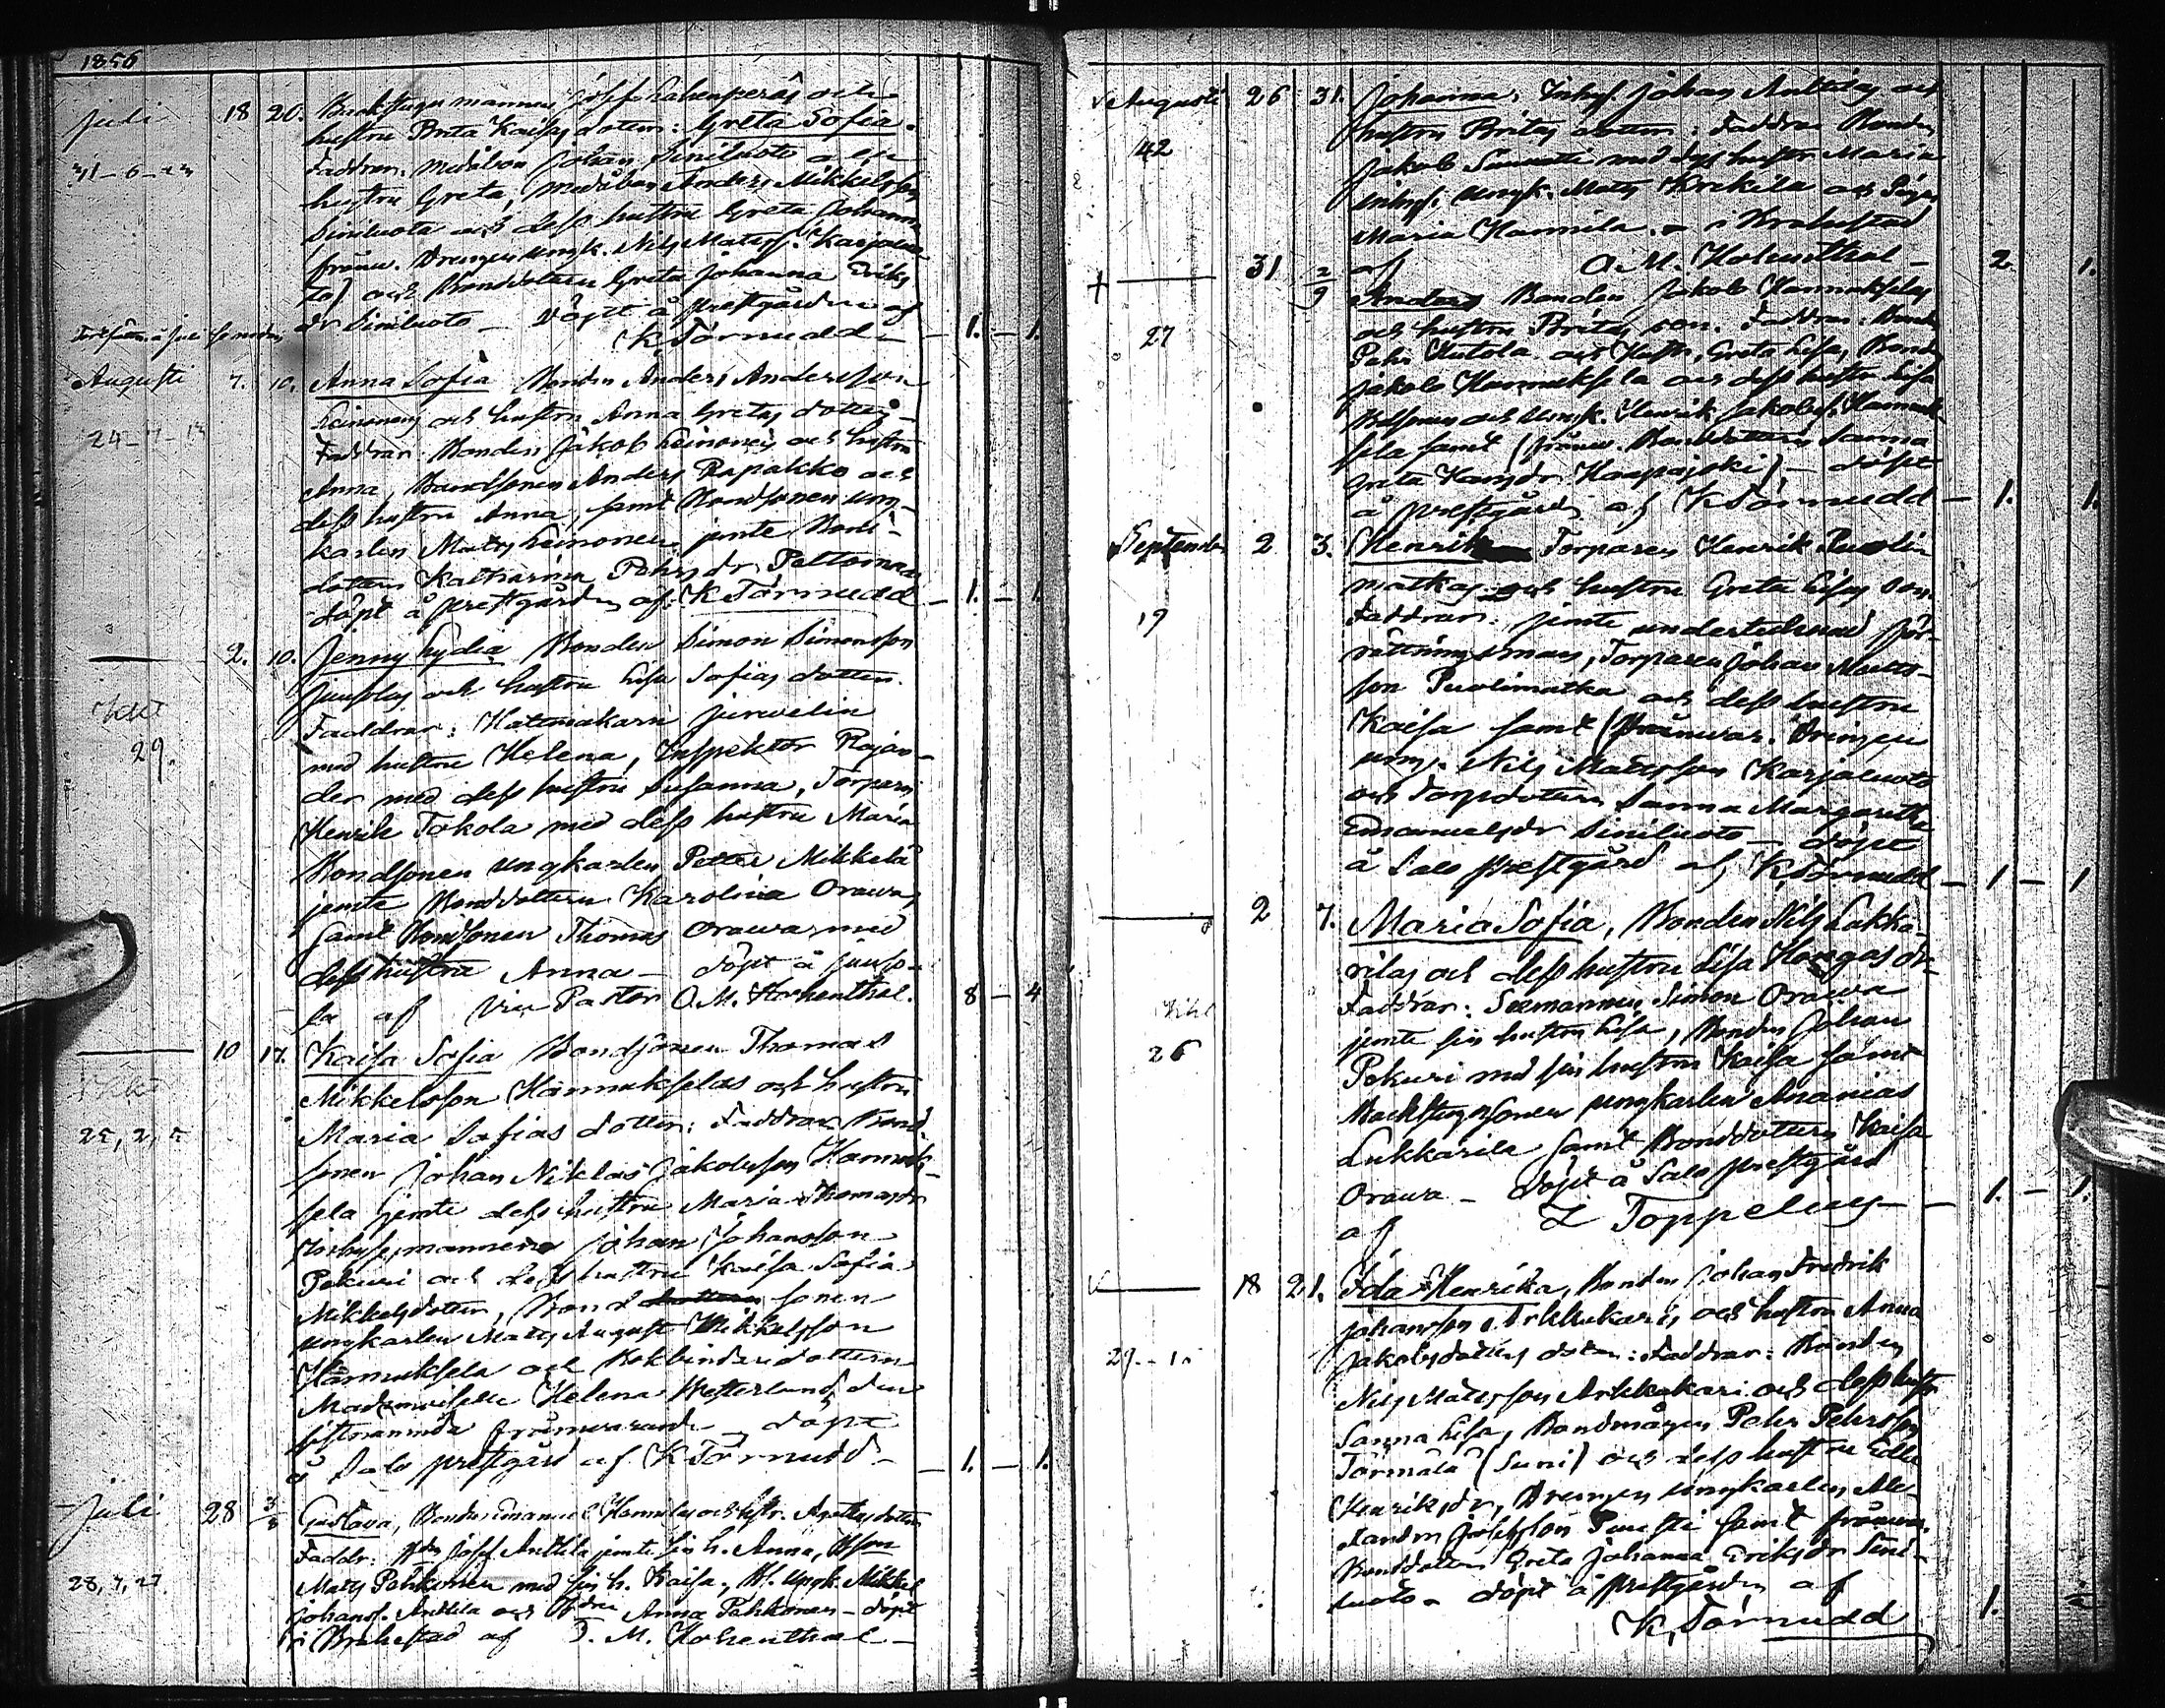 1856
Juli 18 20. Backstugumannen Josef Lahenperäs och
hustru Brita Kaisas dotter: Greta Sofia.
31-6-23 Faddrar: Medåboen Johan Siniluoto och
hustru Greta, Medåboen Anders Mikkelsson
Siniluoto och dess hustru Greta Johanna
frånv. Drengen ungk. Nils Matsss. Karjaluo-
to) och Bonddottern Greta Johanna Eriks
dr Siniluoto – Döpt å prestgården af
K. Törnudd – 1. – 1.
Augusti 7. 10. Anna Sofia Bonden Anders Andersson
Leinonens och hustru Anna Gretas dotter –
24-7-13 Faddrar Bonden Jakob Leinonen och hustru
Anna, Bondsonen Anders Papakko och
dess hustru Anna, samt Bondsonen ung-
karlen Mats Leinonen jemte Bond-
dottern Katharina Pehrs dr Peltomaa
döpt å prestgården af: K Törnudd – 1. – 1.
2. 10. Jenny Lydia Bonden Simon Simonsson
Junsolas och hustru Lisa Sofias dotter.
Faddrar: Hattmakarn Jurvelin
29. med hustru Helena, Inspektor Rajan-
der med dess hustru Susanna, Torparn
Henrik Tokola med dess hustru Maria
Bondsonen ungkarlen Petter Mikkelä
jemte Bonddottern Karolina Orawa,
samt Bondsonen Thomas Orawa med
dess hustru Anna – döpt å Junso-
la af Vice Pastor O. M. Hohenthal. 8 – 4
10 17. Kaisa Sofia Bondsonen Thomas
Mikkelsson Hannukselas och hustru
25, 2, Maria Sofias dotter: Faddrar Bond-
sonen Johan Niklas Jakobsson Hannuk-
sela jemte dess hustru Maria Thomasdr
Inhysesmannen Johan Johansson
Pekuri och dess hustru Kaisa Sofia
Mikkelsdotter, Bond sonen
ungkarlen Mats August Mikkelsson
Hannuksela och Bokbindaredottern
Mademoiselle Helena Westerlund, den
sistnämnda frånvarande – döpt
å Salo prestgård af K Törnudd – 1. – 1.
Juli 28 3/8 Gustava, Bonden Emanuel Hannilas och hustr. Agathas dotter
Faddr: Bdn Josef Anttila jemte sin h. Anna, Bsson
28, 7, 27. Mats Pehkonen med sin h. Kaisa, Bs. ungk. Mikkel
Johanss. Anttila och Bdn Anna Pehkonen – döpt
i Brahestad af O. M. Hohenthal –
Augusti 26 31. Johanna, Inhys. Johan Anttilas och
hustru Britas dotter: Faddrar Bonden
42 Jakob med dess hustr Maria
Inhys. ungk. Mats Krekila och Pigan
Maria Hannila. – i Brahestad
af O. M. Hohenthal – 2. 1.
31 2/9 Anders Bonden Jakob Hannukselas
och hustru Britas son. Faddrar: Bonden
27 Pehr Kutola och Hustr. Greta Lisa, Bonden
Jakob Hannuksela och dess hustru Lisa
Bdsonen och ungk. Henrik Jakobss. Hannuk-
sela samt (frånv. Bonddottern Sanna
Greta Hansdr Haapajoki) – döpt
å prestgården af K Törnudd – 1. 1.
September 2 3. Henrik Torparen Henrik Puolin-
matkas och hustru Greta Lisas son.
19 Faddrar: jemte undertecknad för-
rättningsman, Torparen Johan Mats-
son Puolimatka och dess hustru
Kaisa samt (frånvar. Drengen
ung. Nils Matsson Karjaluoto
och Torpdottern Sanna Margaretha
Emanuelsdr Siniluoto – döpt
å Salo prestgård af K. Törnudd – 1 – 1
2 7. Maria Sofia, Bonden Nils Lukka-
rilas och dess hustru Lisa Hangas dr
Faddrar: Sexmannen Simon Orawa
jemte sin hustru Lisa, Bonden Johan
26 Pekuri med sin hustru Kaisa samt
Backstugusonen ungkarlen Ananias
Lukkarila samt Bonddottern Kaisa
Orawa – döpt å Salo prestgård
af L Toppelius – 1. – 1.
18 21. Ida Henrika, Bonden Johan Fredrik
Johansson Arkkukaris och hustru Anna
29-15 Jakobsdotters dotter: Faddrar: Bonden
Nils Matsson Arkkukari och dess hustr
Sanna Lisa, Bondmågen Pehr Pehrsson
Törmälä (Suni) och dess hustru Edla
Henriksdr, Drengen ungkarlen Ale-
xander Josefsson Puusti samt frånvar.
Bonddottern Greta Johanna Eriksdr Sini-
luoto – döpt å prestgården af
K. Törnudd 1.